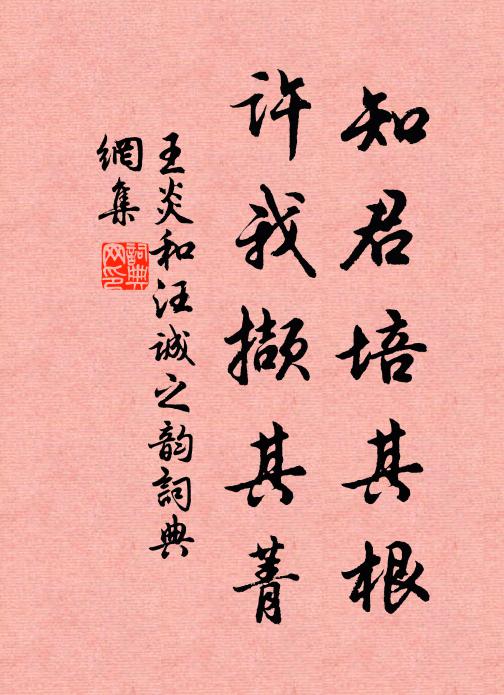 知君培其根
许我擷其菁
王炎和汪诚之韵詞典
網集
詞典网印